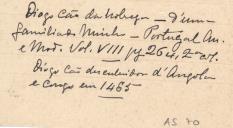 Diogo Cão da Nobrega – D'uma
familia do Minho – Portugal An.
e Mod. Vol. VIII pg 264, 2ª col.
Diogo Cão descubridor d'Angola
e Congo em 1485
AS 70